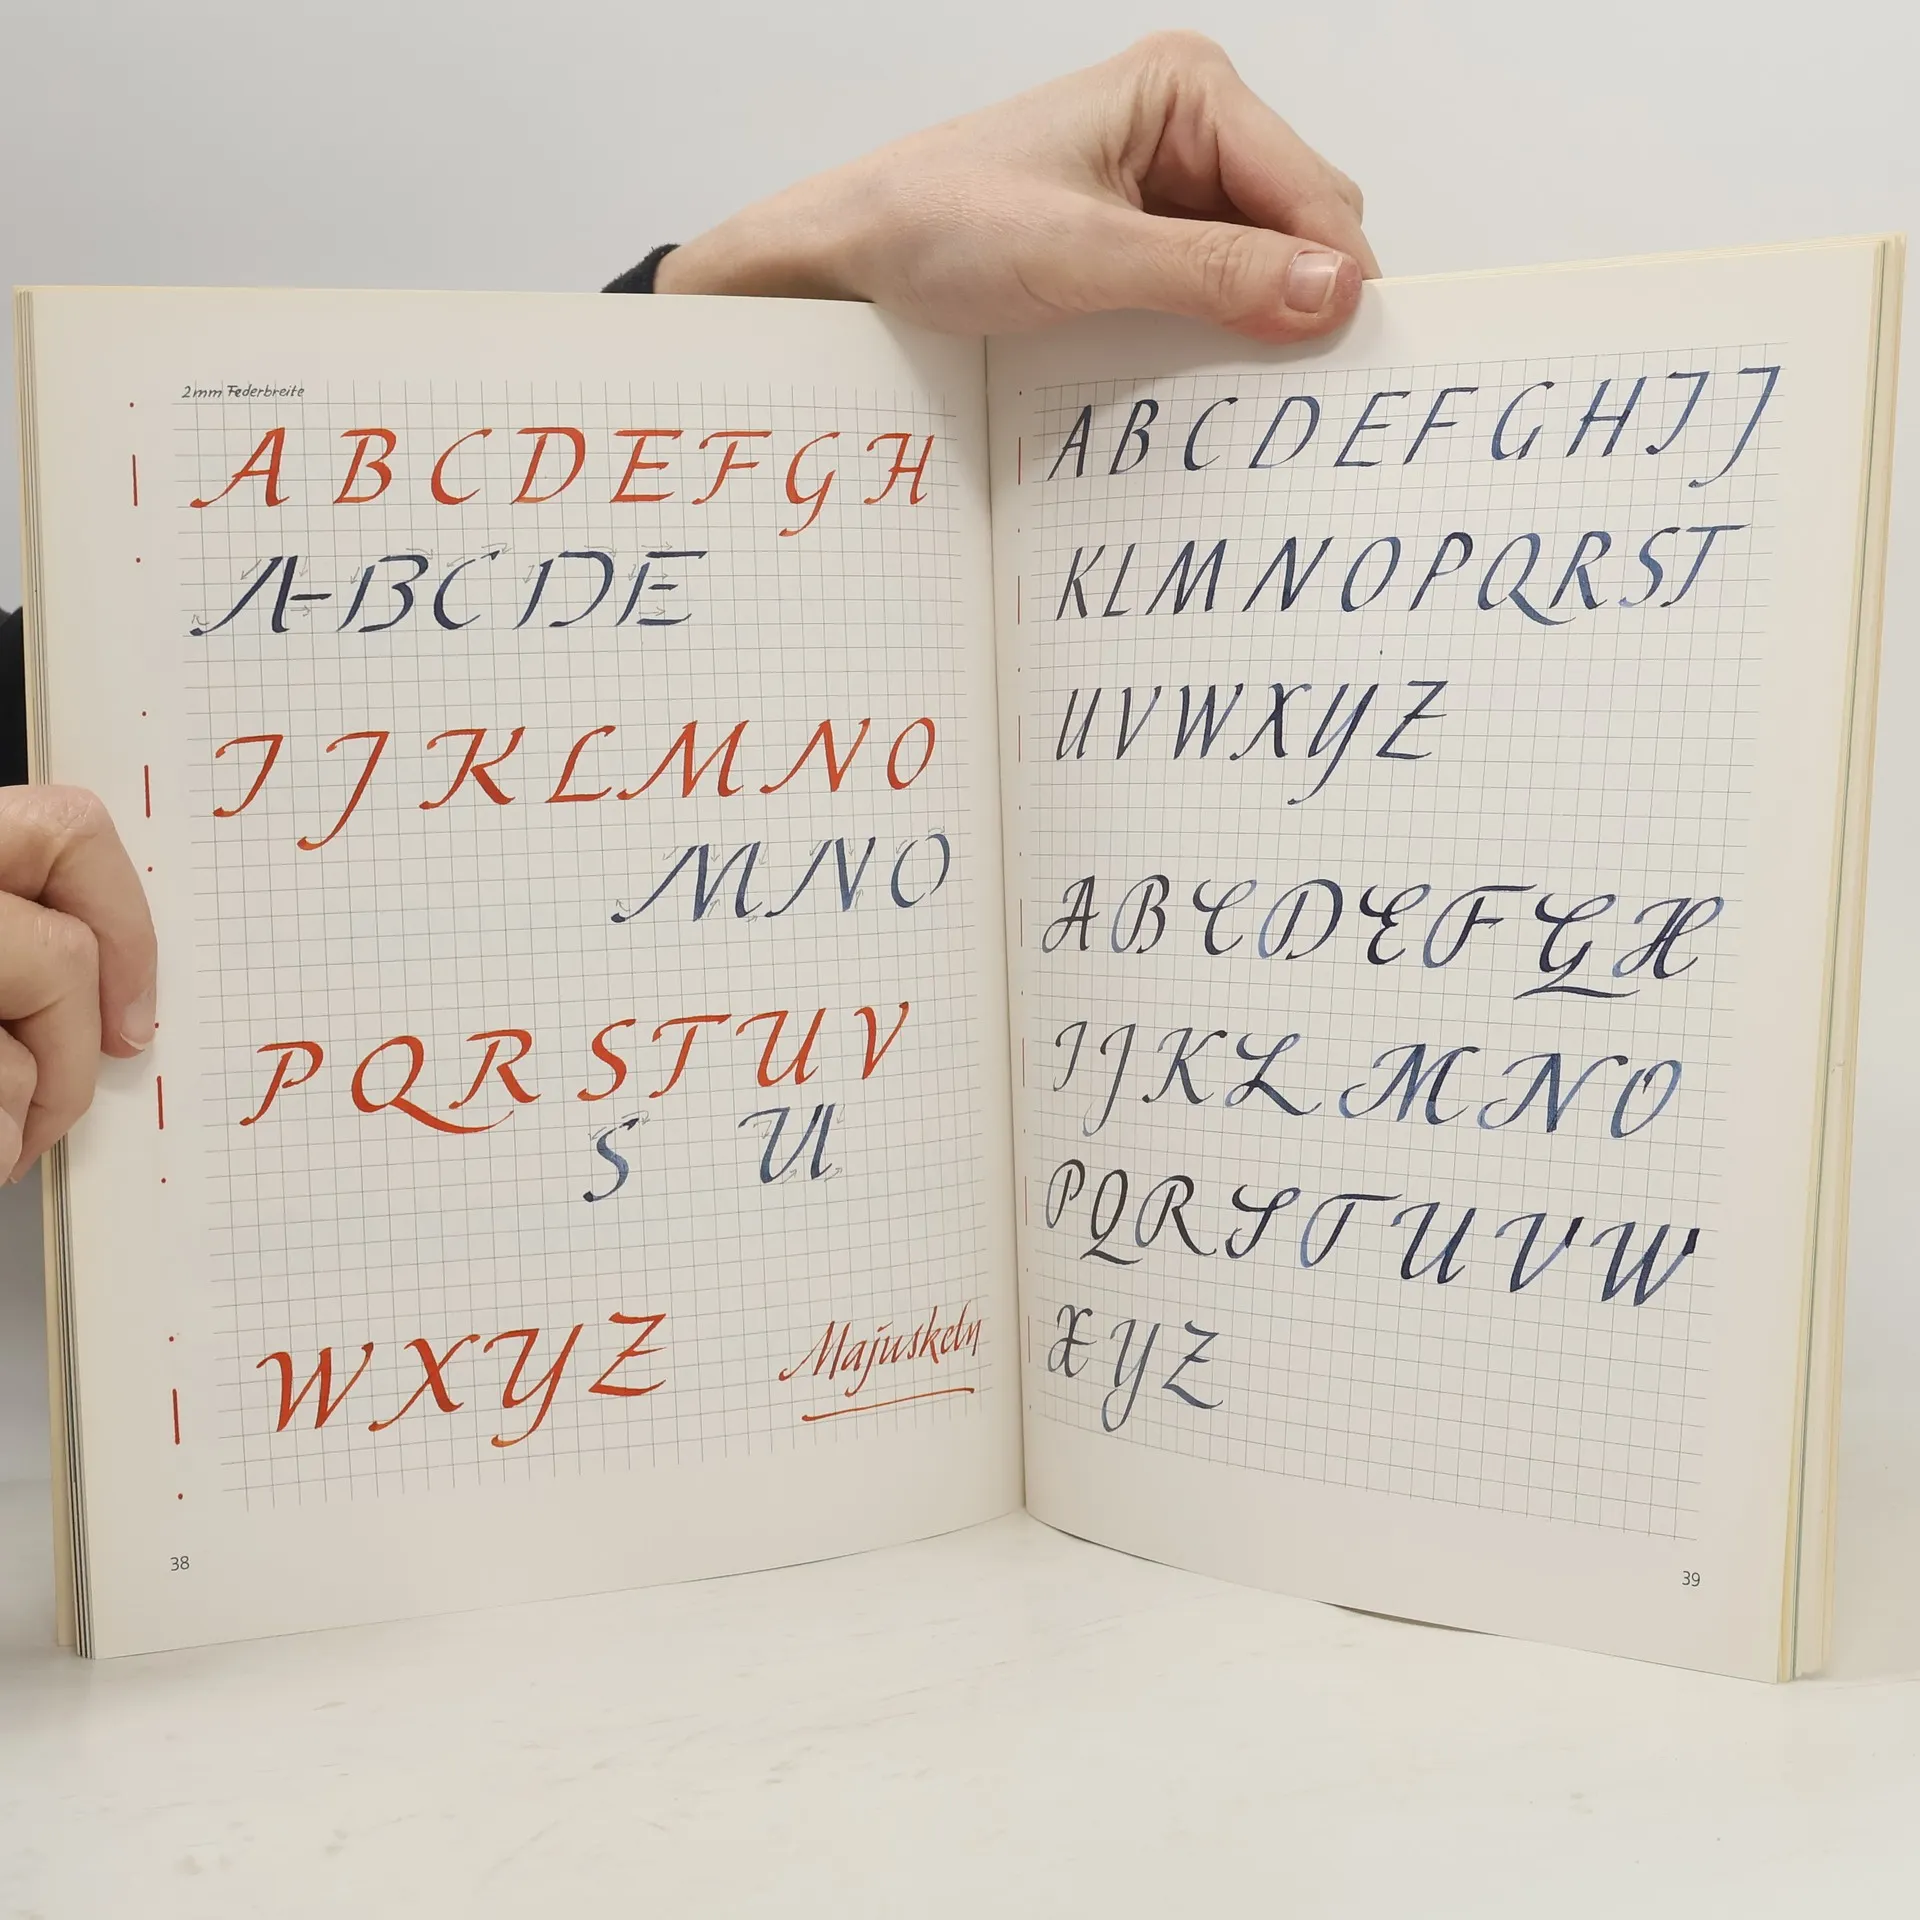 2mm Federbreite
A B C D E F G H
A B C D E
I J K L M N O
M N O
P Q R S T U V
S U
W X Y Z
Majuskeln
38
A B C D E F G H I J
K L M N O P Q R S T
U V W X Y Z
A B C D E F G H
I J K L M N O
P Q R S T U V W
X Y Z
39